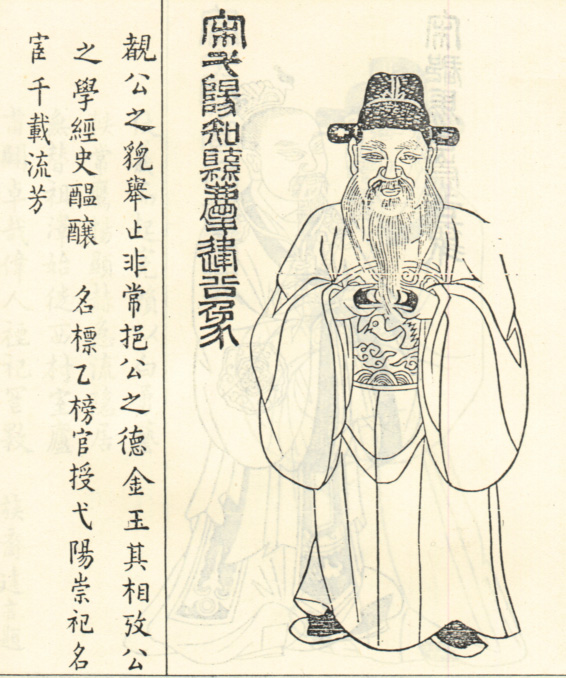 宋弋陽知縣建公象
覩公之貌舉止非常挹公之德金玉其相攷公
之學經史醞釀　名標乙榜官授弋陽崇祀名
宦千載流芳